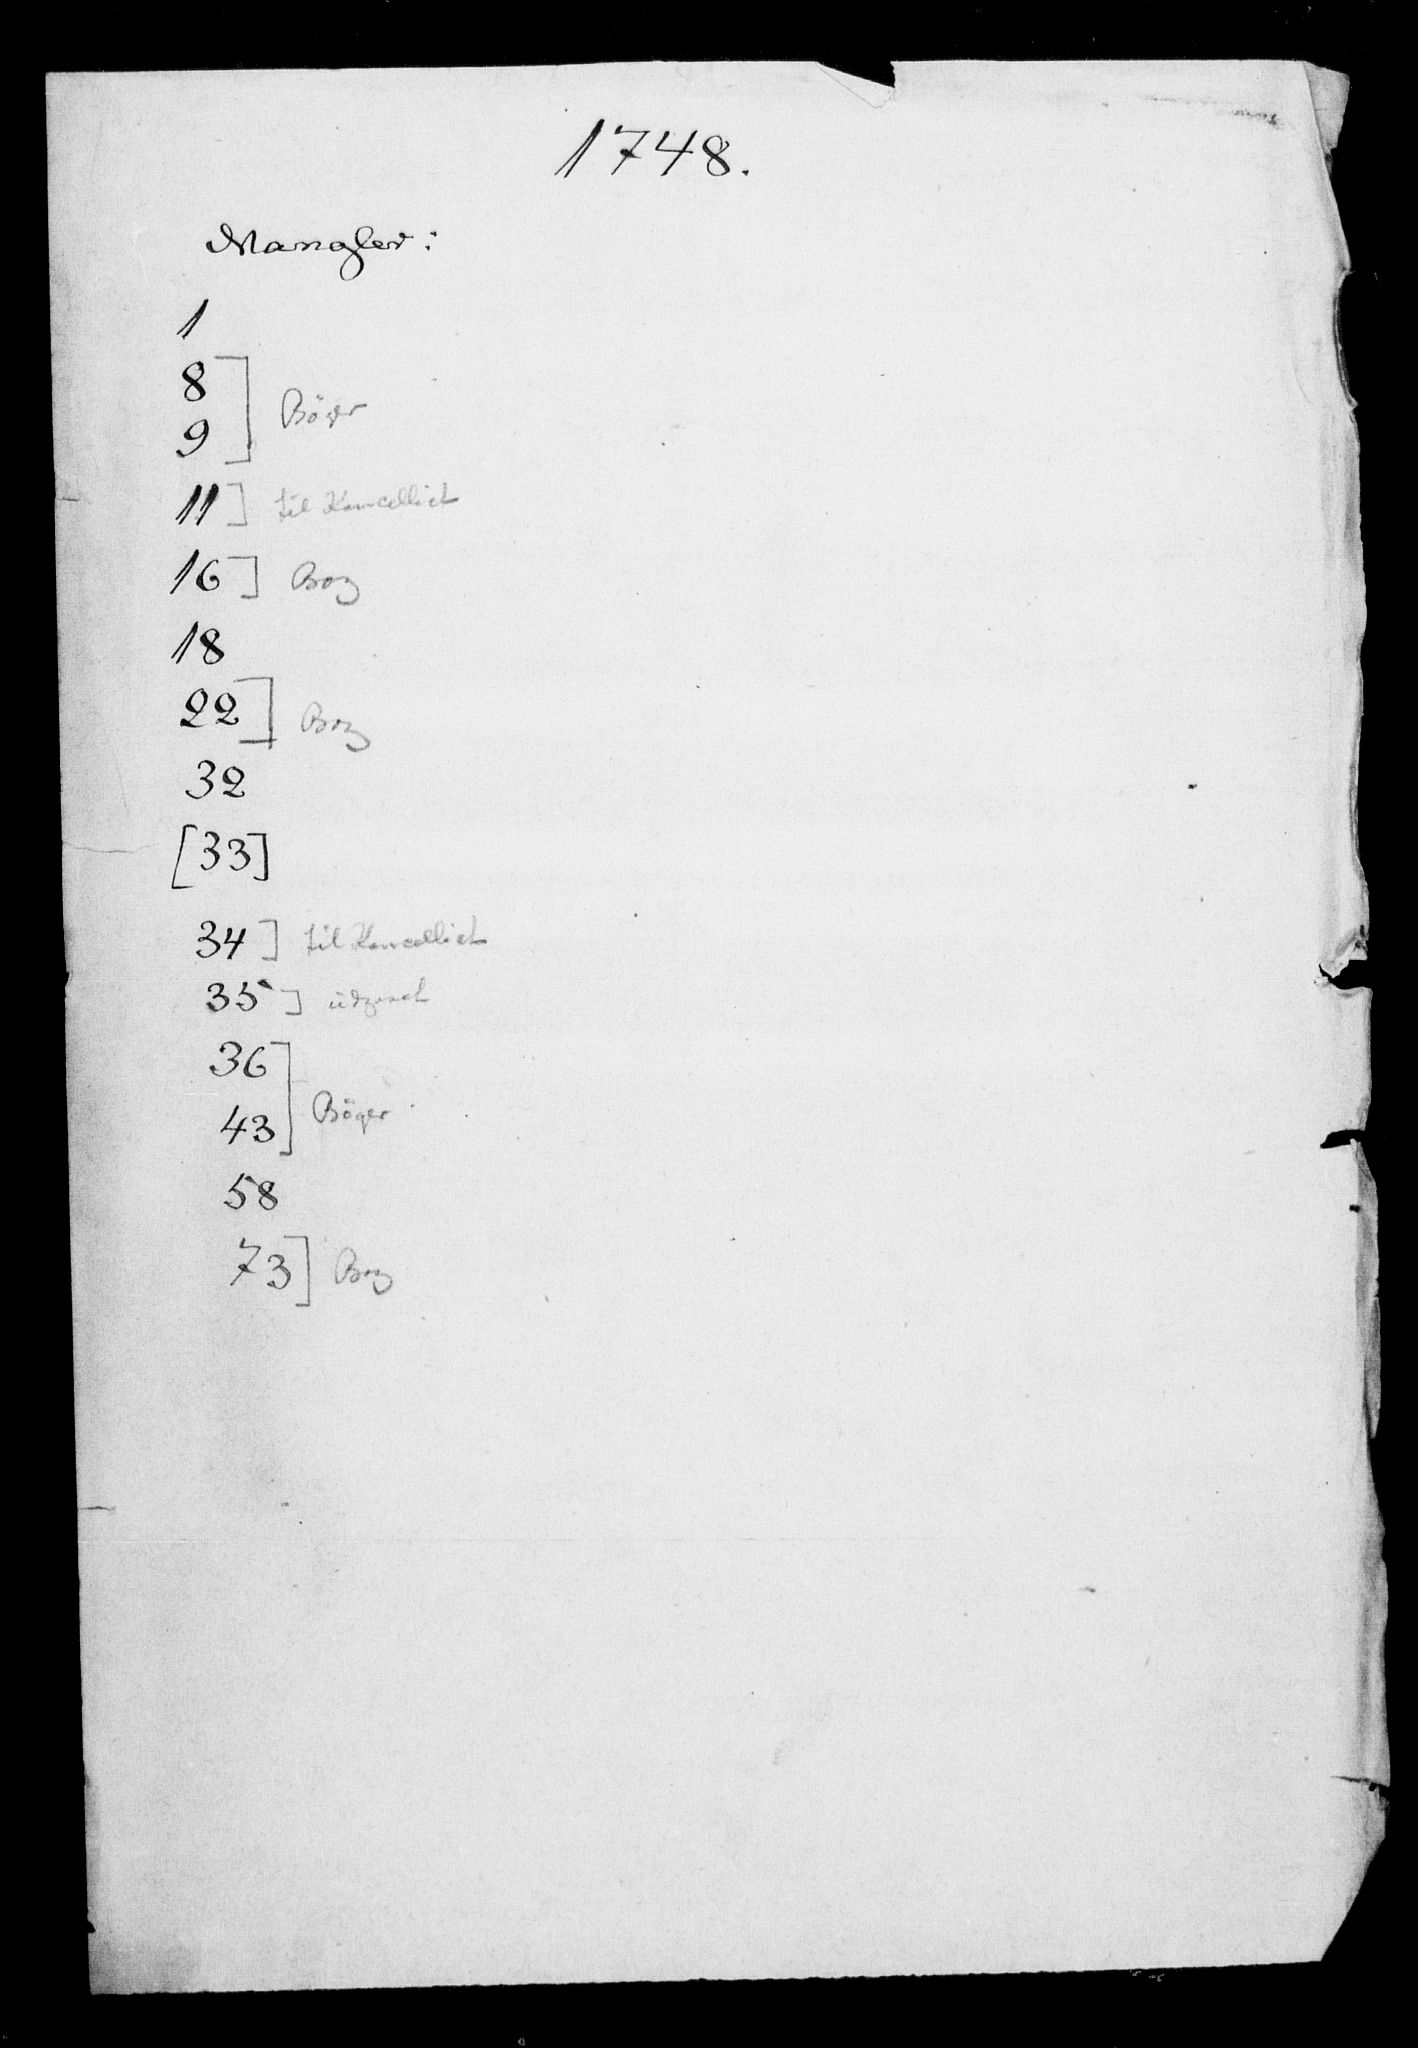 1748.
Mangler:
1
8
9 ] Böger
11 ] til Kancelliet
16 ] Bog
18
22 ] Bog
32
[33]
34 ] til Kancelliet
35 ]
36
43 ] Böger
58
73 ] Bog